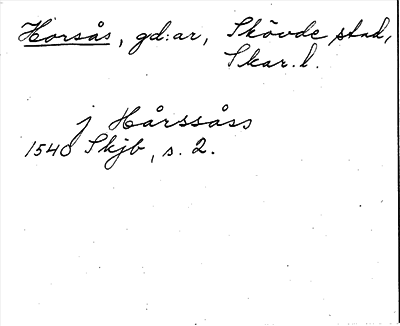 Horsås, gd:ar, Skövde stad,
Skar. l.
j Hårssåss
1540 Skjb, s. 2.